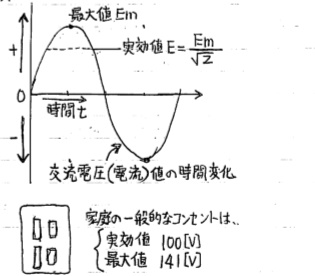 最大値 Em
+
実効値 E = Em/√2
0
時間 t
-
交流電圧(電流)値の時間変化
家庭の一般的なコンセントは、
実効値 100[V]
最大値 141[V]